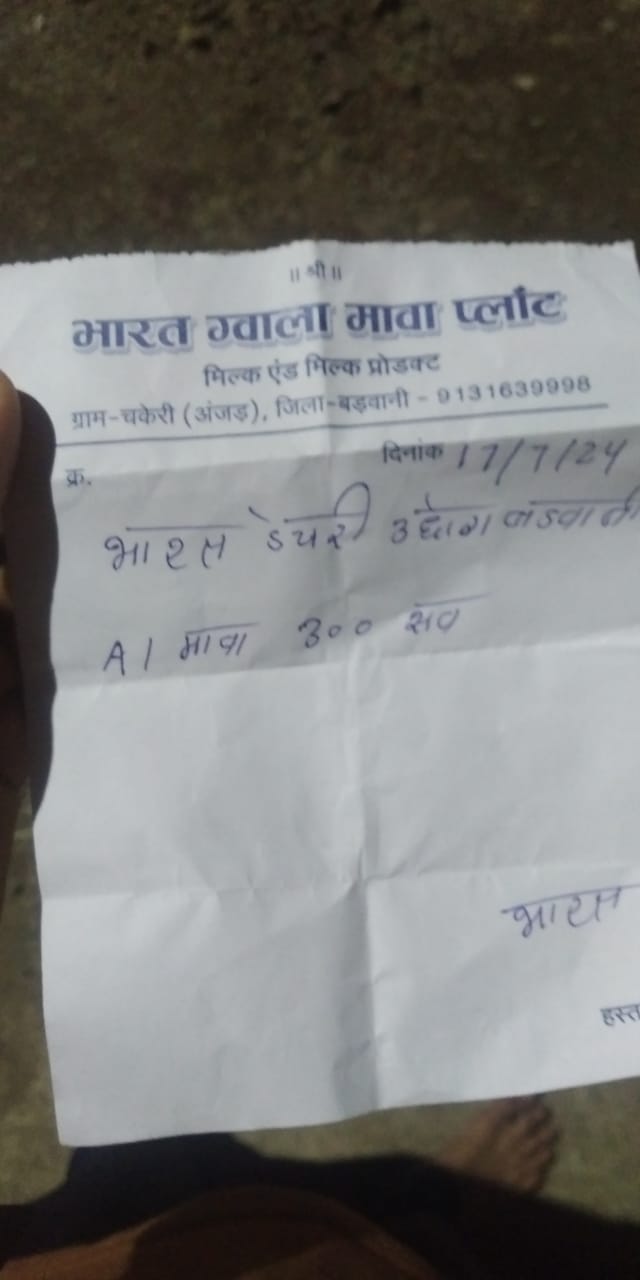 ॥ श्री ॥
भारत ग्वाला मावा प्लांट
मिल्क एंड मिल्क प्रोडक्ट
ग्राम-चकेरी (अंजड़), जिला-बड़वानी - 9131639998
क्र. दिनांक 17/7/24
भारत डेयरी उद्योग बडवानी
A1 मावा 300
भारत
हस्त